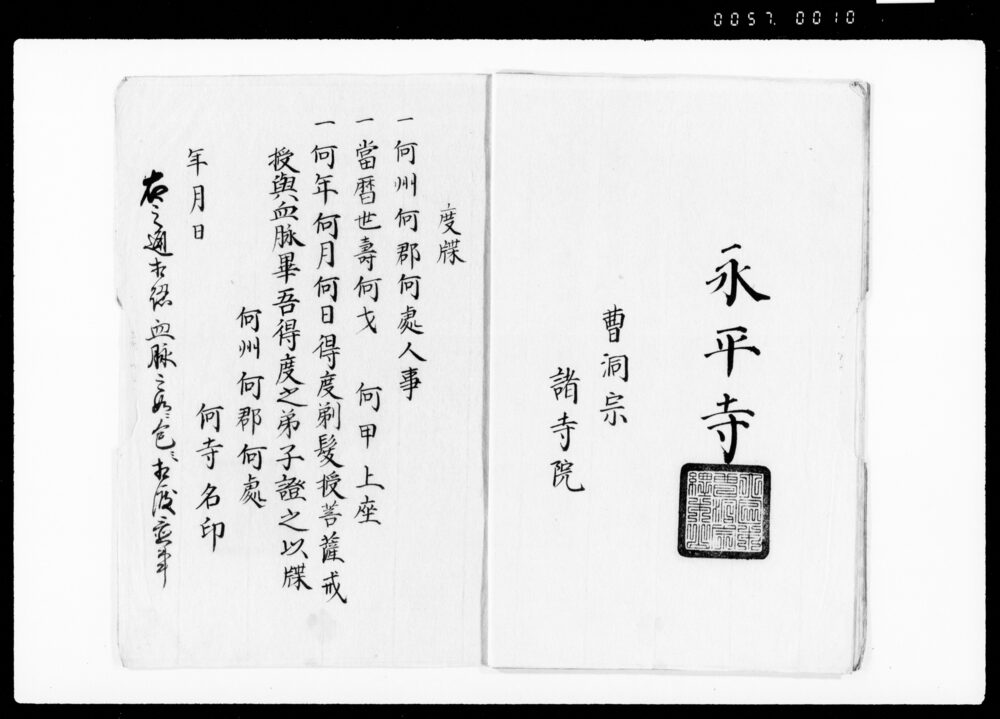 0057.0010
永平寺
曹洞宗
諸寺院
度牒
一何州何郡何處人事
一當曆世壽何戈 何甲上座
一何年何月何日得度剃髮授菩薩戒
授與血脉畢吾得度之弟子證之以牒
何州何郡何處
何寺名印
年月日
右之通相認血脉之